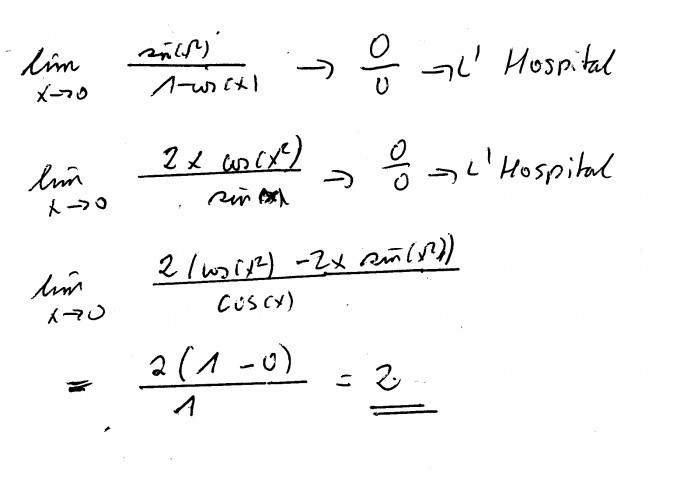 lim x→0 sin(x²) / 1-cos(x) → 0/0 → L' Hospital
lim x→0 2x cos(x²) / sin(x) → 0/0 → L' Hospital
lim x→0 2(cos(x²) - 2x sin(x²)) / cos(x)
= 2(1-0) / 1 = 2